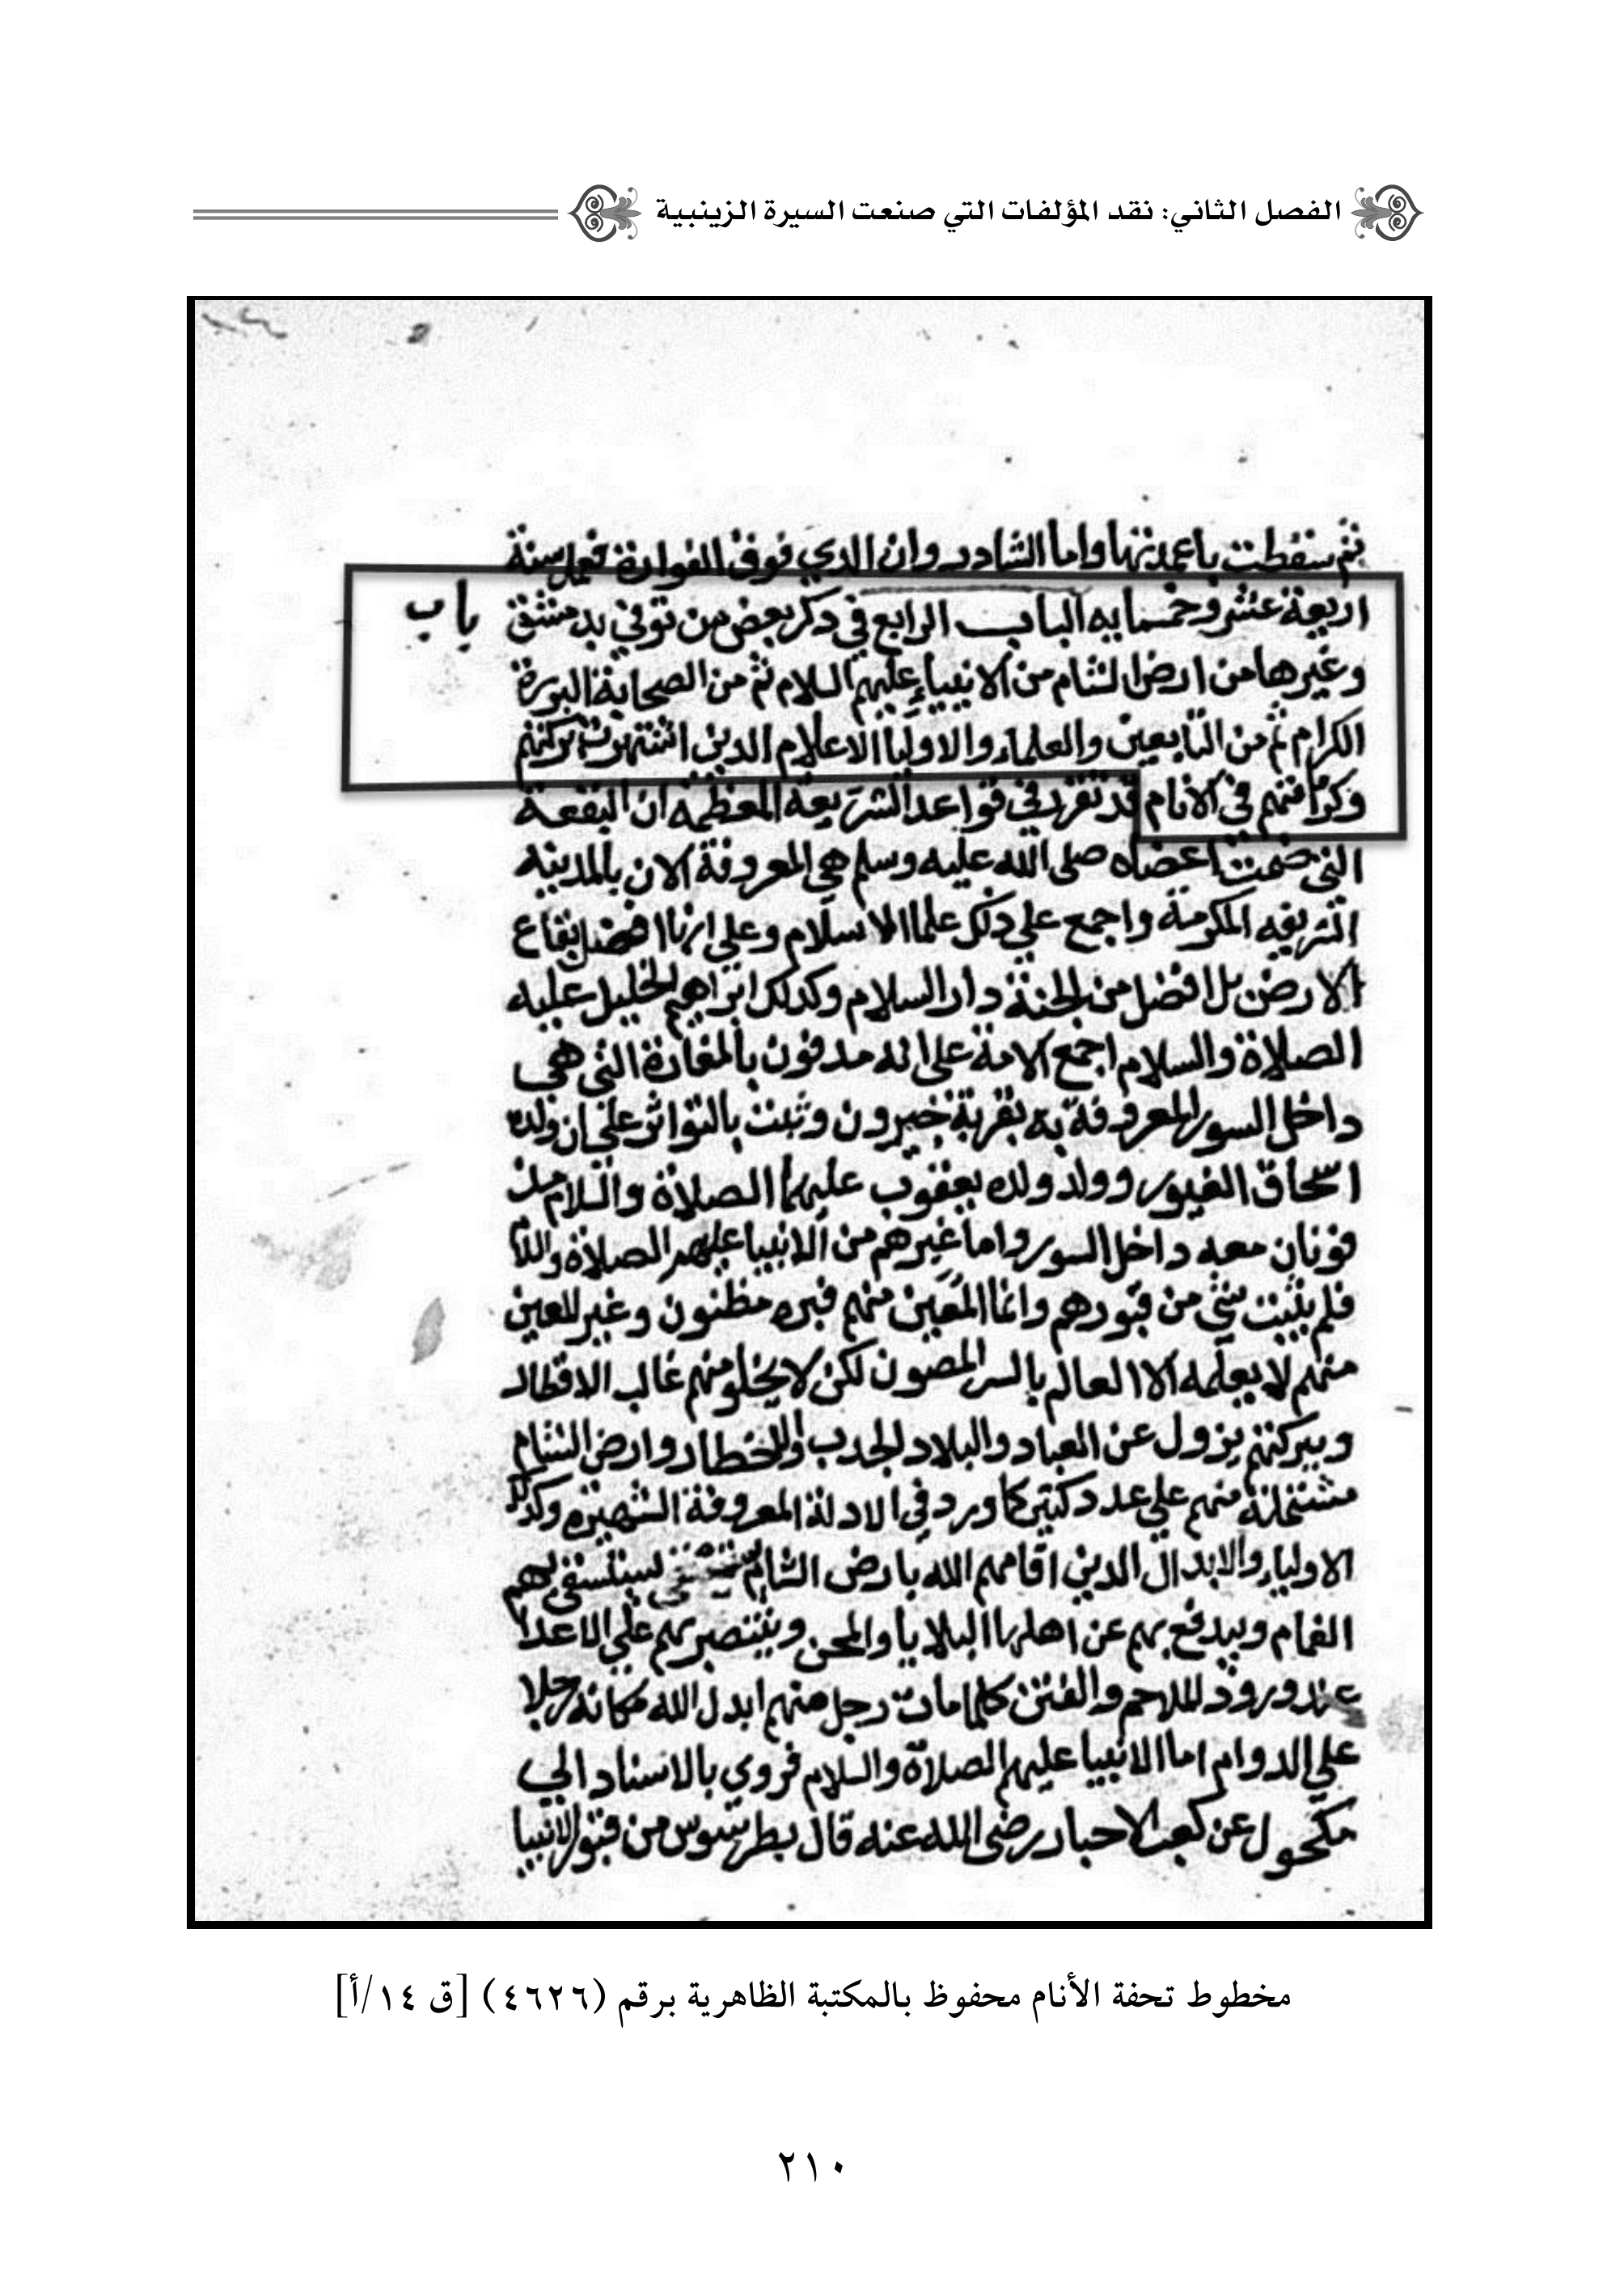 الفصل الثاني: نقد المؤلفات التي صنعت السيرة الزينبية
ثم سقطت باعمدتها واما الشادر وان الدي فوق الفوارة فعمل سنة
اربعة عشر وخمسمايه الباب الرابع في دكر بعض من توفي بدمشق
باب
وغيرها من ارض الشام من الانبياء عليهم السلام ثم من الصحابة البررة
الكرام ثم من التابعين والعلماء والاوليا الاعلام الدين اشتهرت بركتهم
وكرامتهم في الانام قد تقرر في قواعد الشريعة المعظمة ان البقعة
التي ضمت اعضاه صلى الله عليه وسلم هي المعروفة الان بالمدينه
الشريفه المكرمة واجمع علي ذلك علما الاسلام وعلى انها افضل بقاع
الارض بل افضل من الجنة دار السلام وكدلك ابراهيم الخليل عليه
الصلاة والسلام اجمع الامة على انه مدفون بالمغارة التي هي
داخل السور المعروفة به بقرية حبرون وثبت بالتواتر على ان ولده
اسحاق الغيور وولد ولده يعقوب عليهما الصلاة والسلام مد
فونان معه داخل السور واما غيرهم من الانبيا عليهم الصلاة والسلام
فلم يثبت شي من قبورهم وانما المعين منهم قبره مظنون وغير المعين
منهم لا يعلمه الا العالم بالسر المصون لكن لا يخلو منهم غالب الاقطار
وببركتهم يزول عن العباد والبلاد الجدب والاخطار وارض الشام
مشتملة منهم علي عدد كثير كما ورد في الادلة المعروفة الشهيره وكدلك
الاولياء والابدال الدين اقامهم الله بارض الشام يستسقى بهم
الغمام ويدفع بهم عن اهلها البلايا والمحن وينتصر بهم علي الاعدا
عند ورود الملاحم والفتن كلما مات رجل منهم ابدل الله مكانه رجلا
علي الدوام اما الانبيا عليهم الصلاة والسلام فروي بالاسناد الي
مكحول عن كعب الاحبار رضى الله عنه قال بطرسوس من قبور الانبيا
مخطوط تحفة الأنام محفوظ بالمكتبة الظاهرية برقم (٤٦٢٦) [ق ١٤/أ]
٢١٠